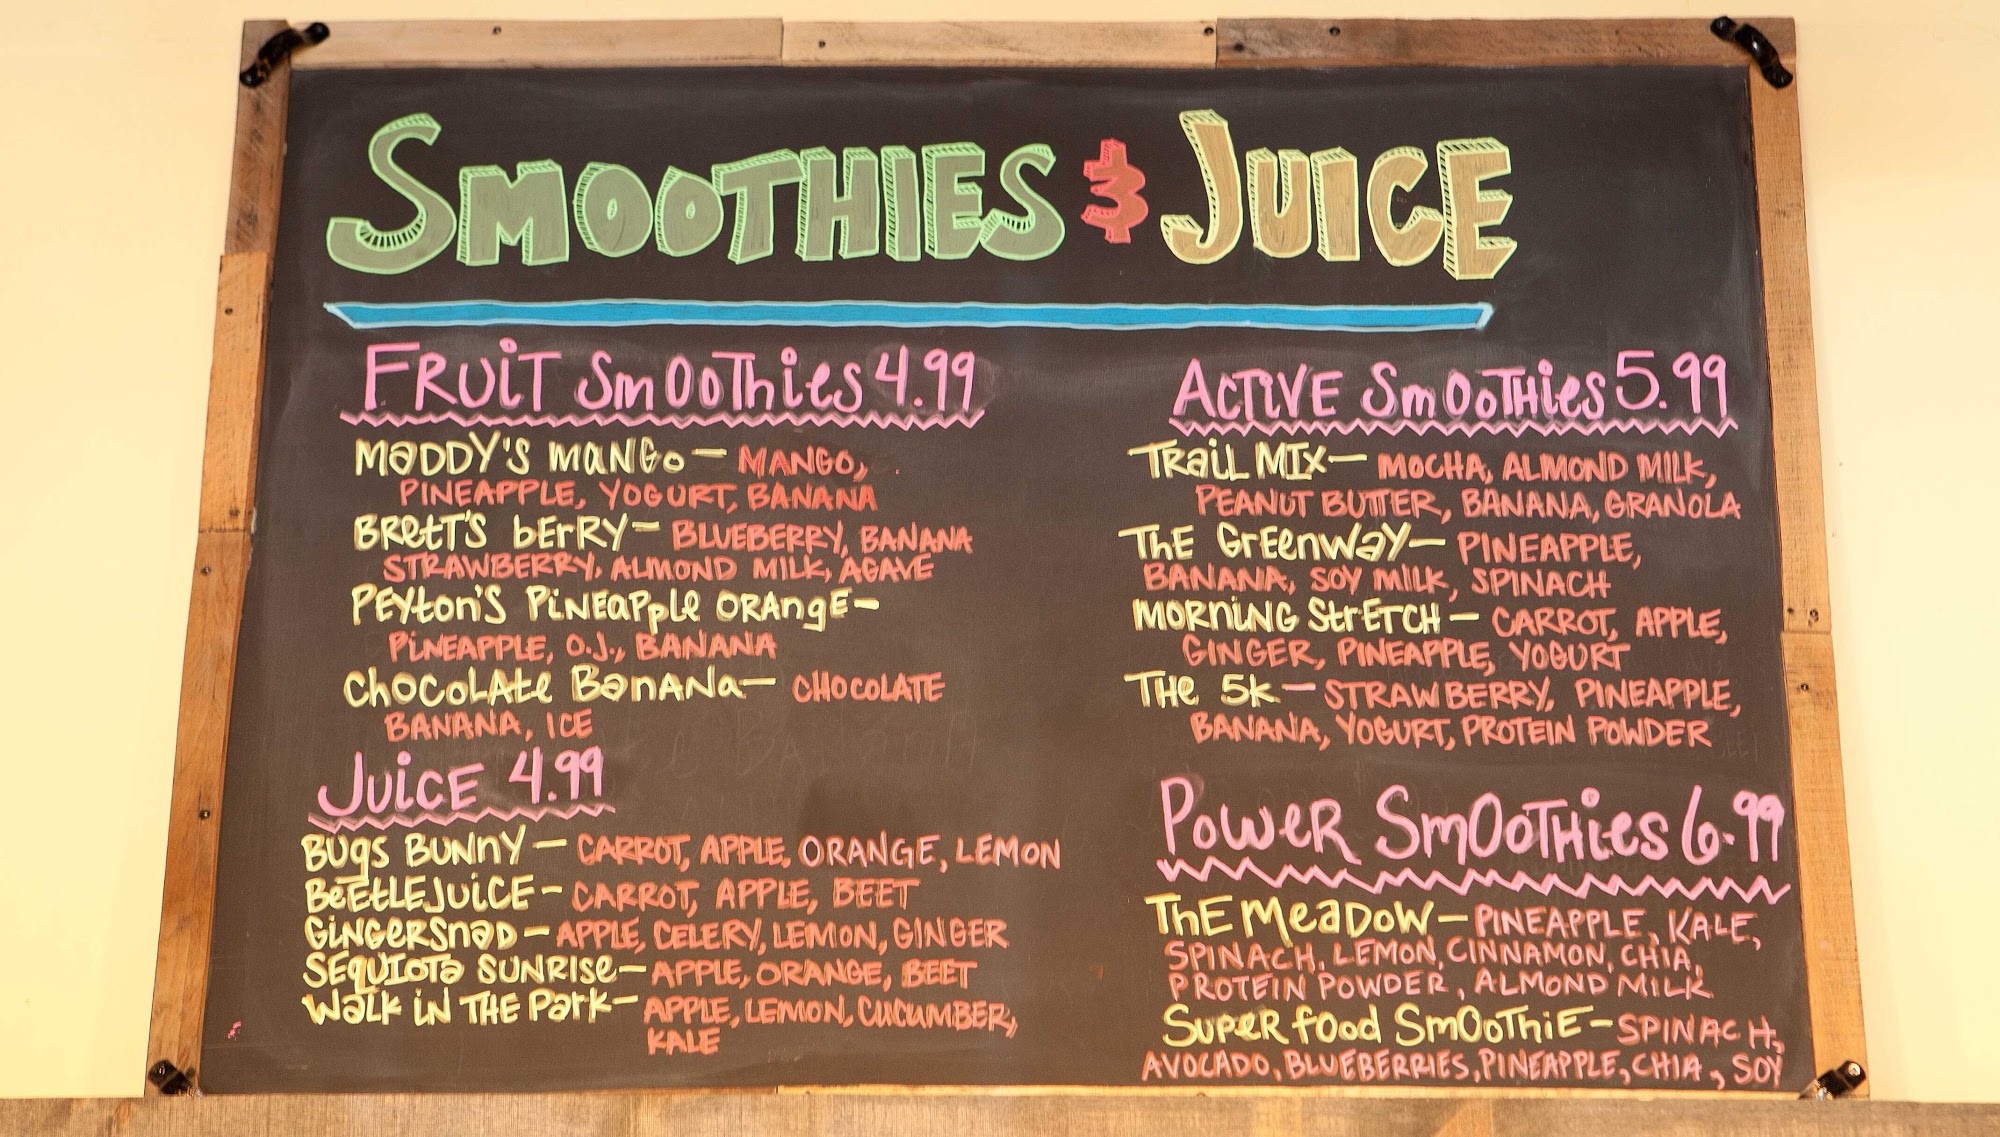 SMOOTHIES & JUICE
FRUIT SmOOThies 4.99
MaDDY'S MANGo — MANGO,
PINEAPPLE, YOGURT, BANANA
BRettT'S bERRY — BLUEBERRY, BANANA
STRAWBERRY, ALMOND MILK, AGAVE
PEYtON'S PiNEaPPle ORAngE —
PINEAPPLE, O.J., BANANA
CHOCOLAte BaNANa — CHOCOLATE
BANANA, ICE
JUiCE 4.99
BUgS BUNNY — CARROT, APPLE, ORANGE, LEMON
BeEtLEJUiCE — CARROT, APPLE, BEET
GiNGERSNaD — APPLE, CELERY, LEMON, GINGER
SEqUIOTa SUNRISe — APPLE, ORANGE, BEET
WaLK iN THE PaRK — APPLE, LEMON, CUCUMBER,
KALE
ACTiVE SmOOTHies 5.99
TRaiL MIX — MOCHA, ALMOND MILK,
PEANUT BUTTER, BANANA, GRANOLA
ThE GREENWAY — PINEAPPLE,
BANANA, SOY MILK, SPINACH
MORNiNG StREtCH — CARROT, APPLE,
GINGER, PINEAPPLE, YOGURT
THe 5k — STRAWBERRY, PINEAPPLE,
BANANA, YOGURT, PROTEIN POWDER
PoWeR SmOOTHies 6.99
ThE MeaDOW — PINEAPPLE, KALE,
SPINACH, LEMON, CINNAMON, CHIA,
PROTEIN POWDER, ALMOND MILK
SUPeR fOOd SmOOThiE — SPINACH,
AVOCADO, BLUEBERRIES, PINEAPPLE, CHIA, SOY